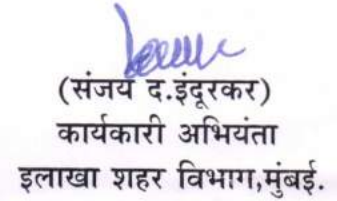 (संजय द.इंदूरकर)
कार्यकारी अभियंता
इलाखा शहर विभाग,मुंबई.